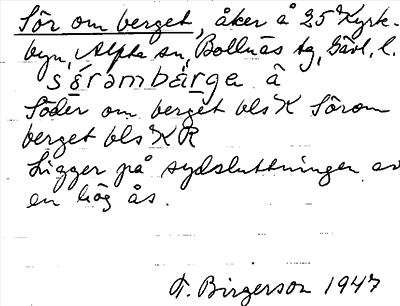 Sör om berget, åker å 25 Kyrk-
byn, Alfta sn, Bollnäs tg, Gävl. l.
sö̱rəmbärga â
Söder om berget bls K Sörom
berget bls K R
Ligger på sydsluttningen av
en hög ås.
F. Birgerson 1947